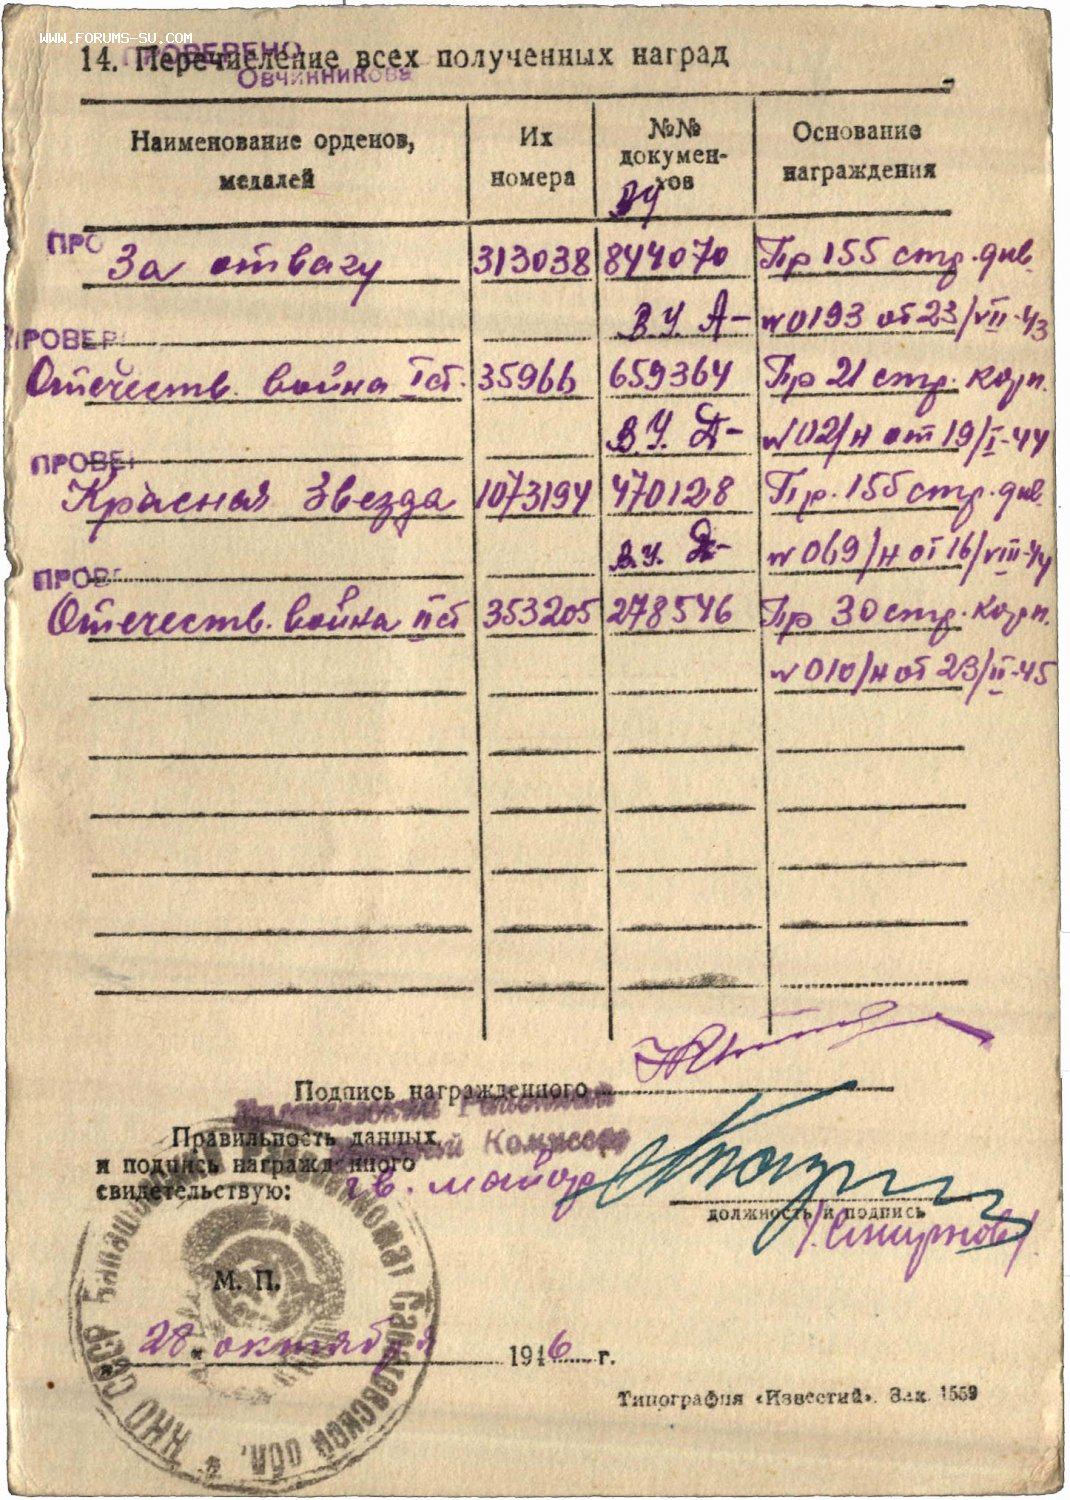 WWW.FORUMS-SU.COM
ПРОВЕРЕНО
14. Перечисление всех полученных наград
Овчинникова
Наименование орденов, медалей
Их номера
№№ документов
Основание награждения
ВУ
ПРО
За отвагу 313038 844070 Пр 155 стр. див.
В.У. А- №0193 от 23/VII-43
ПРОВЕР
Отечеств. война I ст. 35966 659364 Пр 21 стр. корп.
В.У. Д- №02/н от 19/I-44
ПРОВЕ
Красная Звезда 1073194 470128 Пр. 155 стр. див
В.У. Д- №069/н от 16/VIII-44
ПРОВ
Отечеств. война II ст 353205 278546 Пр 30 стр. корп.
№010/н от 23/II-45
Подпись награжденного
Районный
Правильность данных
Комиссар
и подпись награжденного
свидетельствую:
гв. майор
должность и подпись
/Смирнов/
М. П.
НКО СССР Балашовский Райвоенкомат Саратовской обл.
„28“ октября 1946 г.
Типография «Известий». Зак. 1559